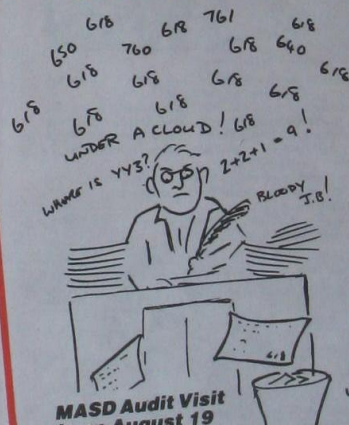 618 618 761 618
650 760 618 640
618 618 618 618
618 618 618 618
UNDER A CLOUD!
WHERE IS YY3? 2+2+1=9!
BLOODY
J.B!
618
MASD Audit Visit
August 19